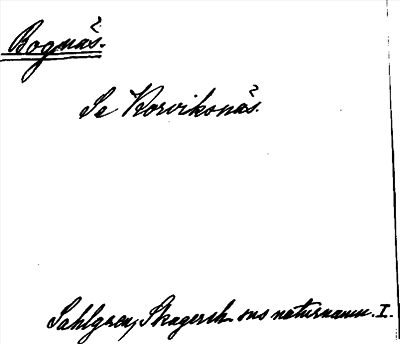 Bognäs.
Se Korvikonäs.
Sahlgren, Skagersh. sns naturnamn. I.